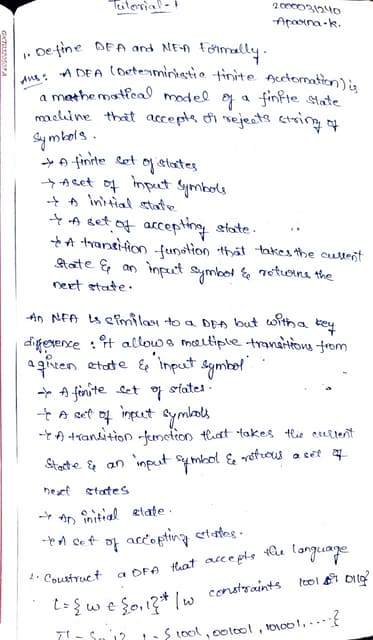 Tutorial-1
2000031240
Aparna.k.
1. Define DFA and NFA Formally.
Ans: A DFA (Deterministic finite Acctomation) is
a mathematical model of a finite state
machine that accepts or rejects string of
symbols.
→ A finite set of states
→ A set of input symbols
→ A initial state
→ A set of accepting state.
→ A transition function that takes the current
state & an input symbol & returns the
next state.
An NFA is similar to a DFA but with a key
difference : it allows multiple transitions from
a given state & input symbol
→ A finite set of states.
→ A set of input symbols
→ A transition function that takes the current
state & an input symbol & returns a set of
next states
→ An initial state.
→ A set of accepting states.
2. Construct a DFA that accepts the language
L = { w ∈ {0,1}* | w constraints 1001 or 0110}
{ 1001, 001001, 101001, ....}